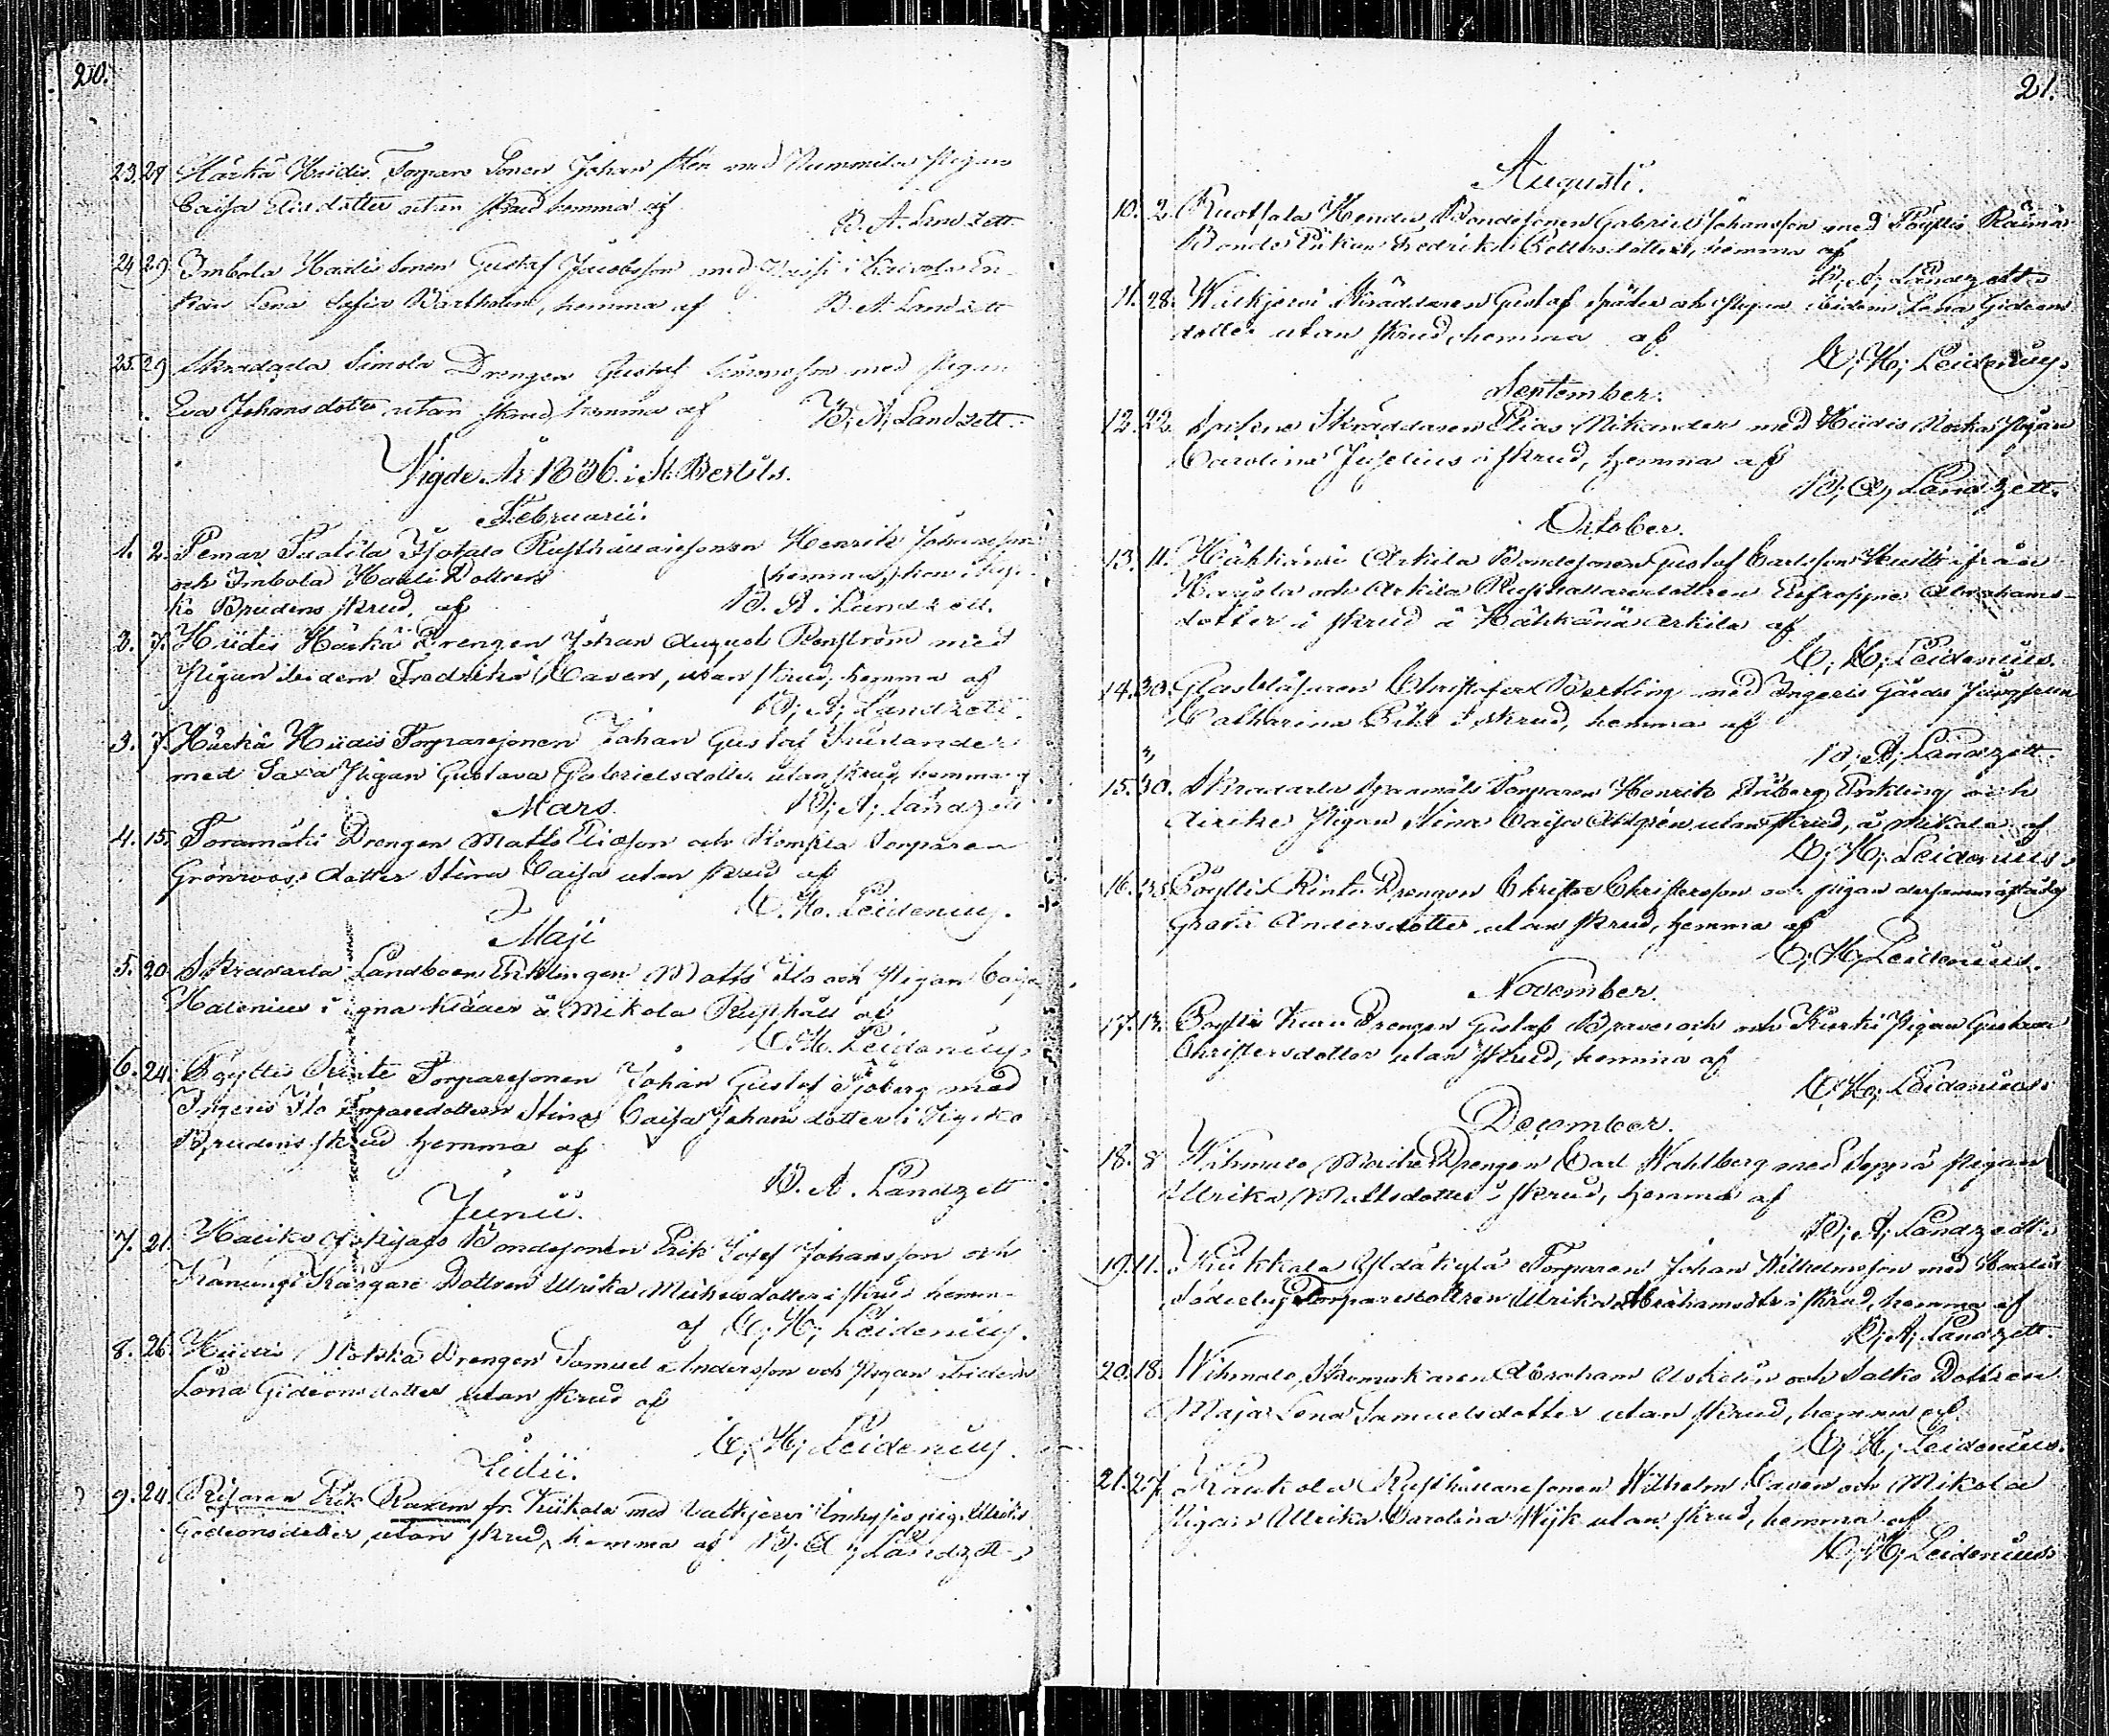 20.
23. 27 Härkä Hiidis Torpare Sonen Johan Sten med Nummila Pigan
Caisa Eliedotter utan skrud hemma af
B. A. Landzett
24 29 Imbola Hadis Sonen Gustaf Jacobsson med
Lena Sofia Bartholin, hemma af B. A. Landzett
25. 29 Skradarla Simola Drengen Gustaf Simonsson med Pigan
Eva Johansdotter utan skrud, hemma af B; A; Landzett.
Vigde År 1836. i St. Bertils.
Februarii.
1. 2. Pemar Isotalo Rusthållaresonen Henrik Johansson
och Imbola Dottren (hemma,) hon i
ko Brudens skrud, af B. A. Landzett.
2. 7. Hiidis Härkä Drengen Johan August Renström med
Pigan ibidem Fredrika Caven, utan skrud, hemma af
B; A; Landzett.
3. 7. Härkä Hiidis Torparesonen Johan Gustaf
med Saxa Pigan Gustava Gabrielsdotter utan skrud, hemma af
Mars. B; A; Landzett
4. 15. Toramäki Drengen Matts Ericsson och Kompla Torparen
Grönroos, dotter Stina Caisa utan skrud af
C. H. Leidenius.
Maji
5. 20. Skradarla Landboen Enklingen Matts Ilo och Pigan Caisa
Halenius i egna kläder å Mikola Rusthåll af
C. H. Leidenius.
6. 24. Pöytis Torparesonen Johan Gustaf Sjöberg med
Ingeris Ilo Torparedottren Stina Caisa Johansdotter i Kyrko
Brudens skrud hemma af
B. A. Landzett
Junii.
7. 21. Bondesonen Erik Josef Johansson och
Kanungi Kärgare Dottren Ulrika Michelsdotter i skrud hemma
af C; H; Leidenius.
8. 26. Hiidis Nokka Drengen Samuel Andersson och Pigan ibidem
Lena Gideonsdotter utan skrud af
C; H; Leidenius.
Julii.
9. 24. Erik Raxen fr. Kiikala med Valkjervi Inhyses pig. Ulrika
Gedeonsdotter, utan skrud, hemma af B; A; Landzett
21.
Augusti.
10. 2. Ruotsala Hendu Bondesonen Gabriel Johansson med Pöytis Raimä
Bonde Pikan Fredrika dotter, hemma af
B; A; Landzett
11. 28. Skräddaren Gustaf och Pigan ibidem Lena Gideons
dotter utan skrud, hemma af
C; H; Leidenius.
September.
12. 22. Skräddaren Elias Nikander med Hiidis Nokka Pigan
Carolina Juselius i skrud, hemma af
B; A; Landzett.
October.
13. 11. Hähkänä Arkila Bondesonen Gustaf Carlsson ifrån
och Arkila Rusthållaredottren Eufrosyne Abrahams-
dotter i skrud å Hähkänä Arkila af
C; H; Leidenius.
14. 30. Glasblåsaren Christofer Bertling med Ingeris Gårds Jungfrun
Catharina i skrud, hemma af
B; A; Landzett.
15. 30. Skradarla Torparen Henrik Enklingen och
Pigan Stina Caisa utan skrud, å Mikola af
C; H; Leidenius.
16. Pöytis Rinto Drengen Christer Christersson och Pigan dersammastädes
Greta Andersdotter utan skrud, hemma af
C; H; Leidenius.
November.
17. 13. Pöytis Drengen Gustaf och Kurki Pigan Gustava
Christersdotter utan skrud, hemma af
C; H; Leidenius.
December.
18. 8 Wihmalo Drengen Carl Wahlberg med Seppä Pigan
Ulrika Mattsdotter i skrud, hemma af
B; A; Landzett.
19. 11. Kiukkala Torparen Johan Wilhelmsson med
Torparedottren Ulrika Abrahamsdtr i skrud, hemma af
B; A; Landzett.
20. 18. Wihmalo Skomakaren Abraham Askelin och Salko Dottren
Maja Lena Samuelsdotter utan skrud, hemma af
C; H; Leidenius.
21. 27. Raukola Rusthållaresonen Wilhelm Caven och Mikola
Pigan Ulrika Carolina Wijk utan skrud, hemma af
C; H; Leidenius.